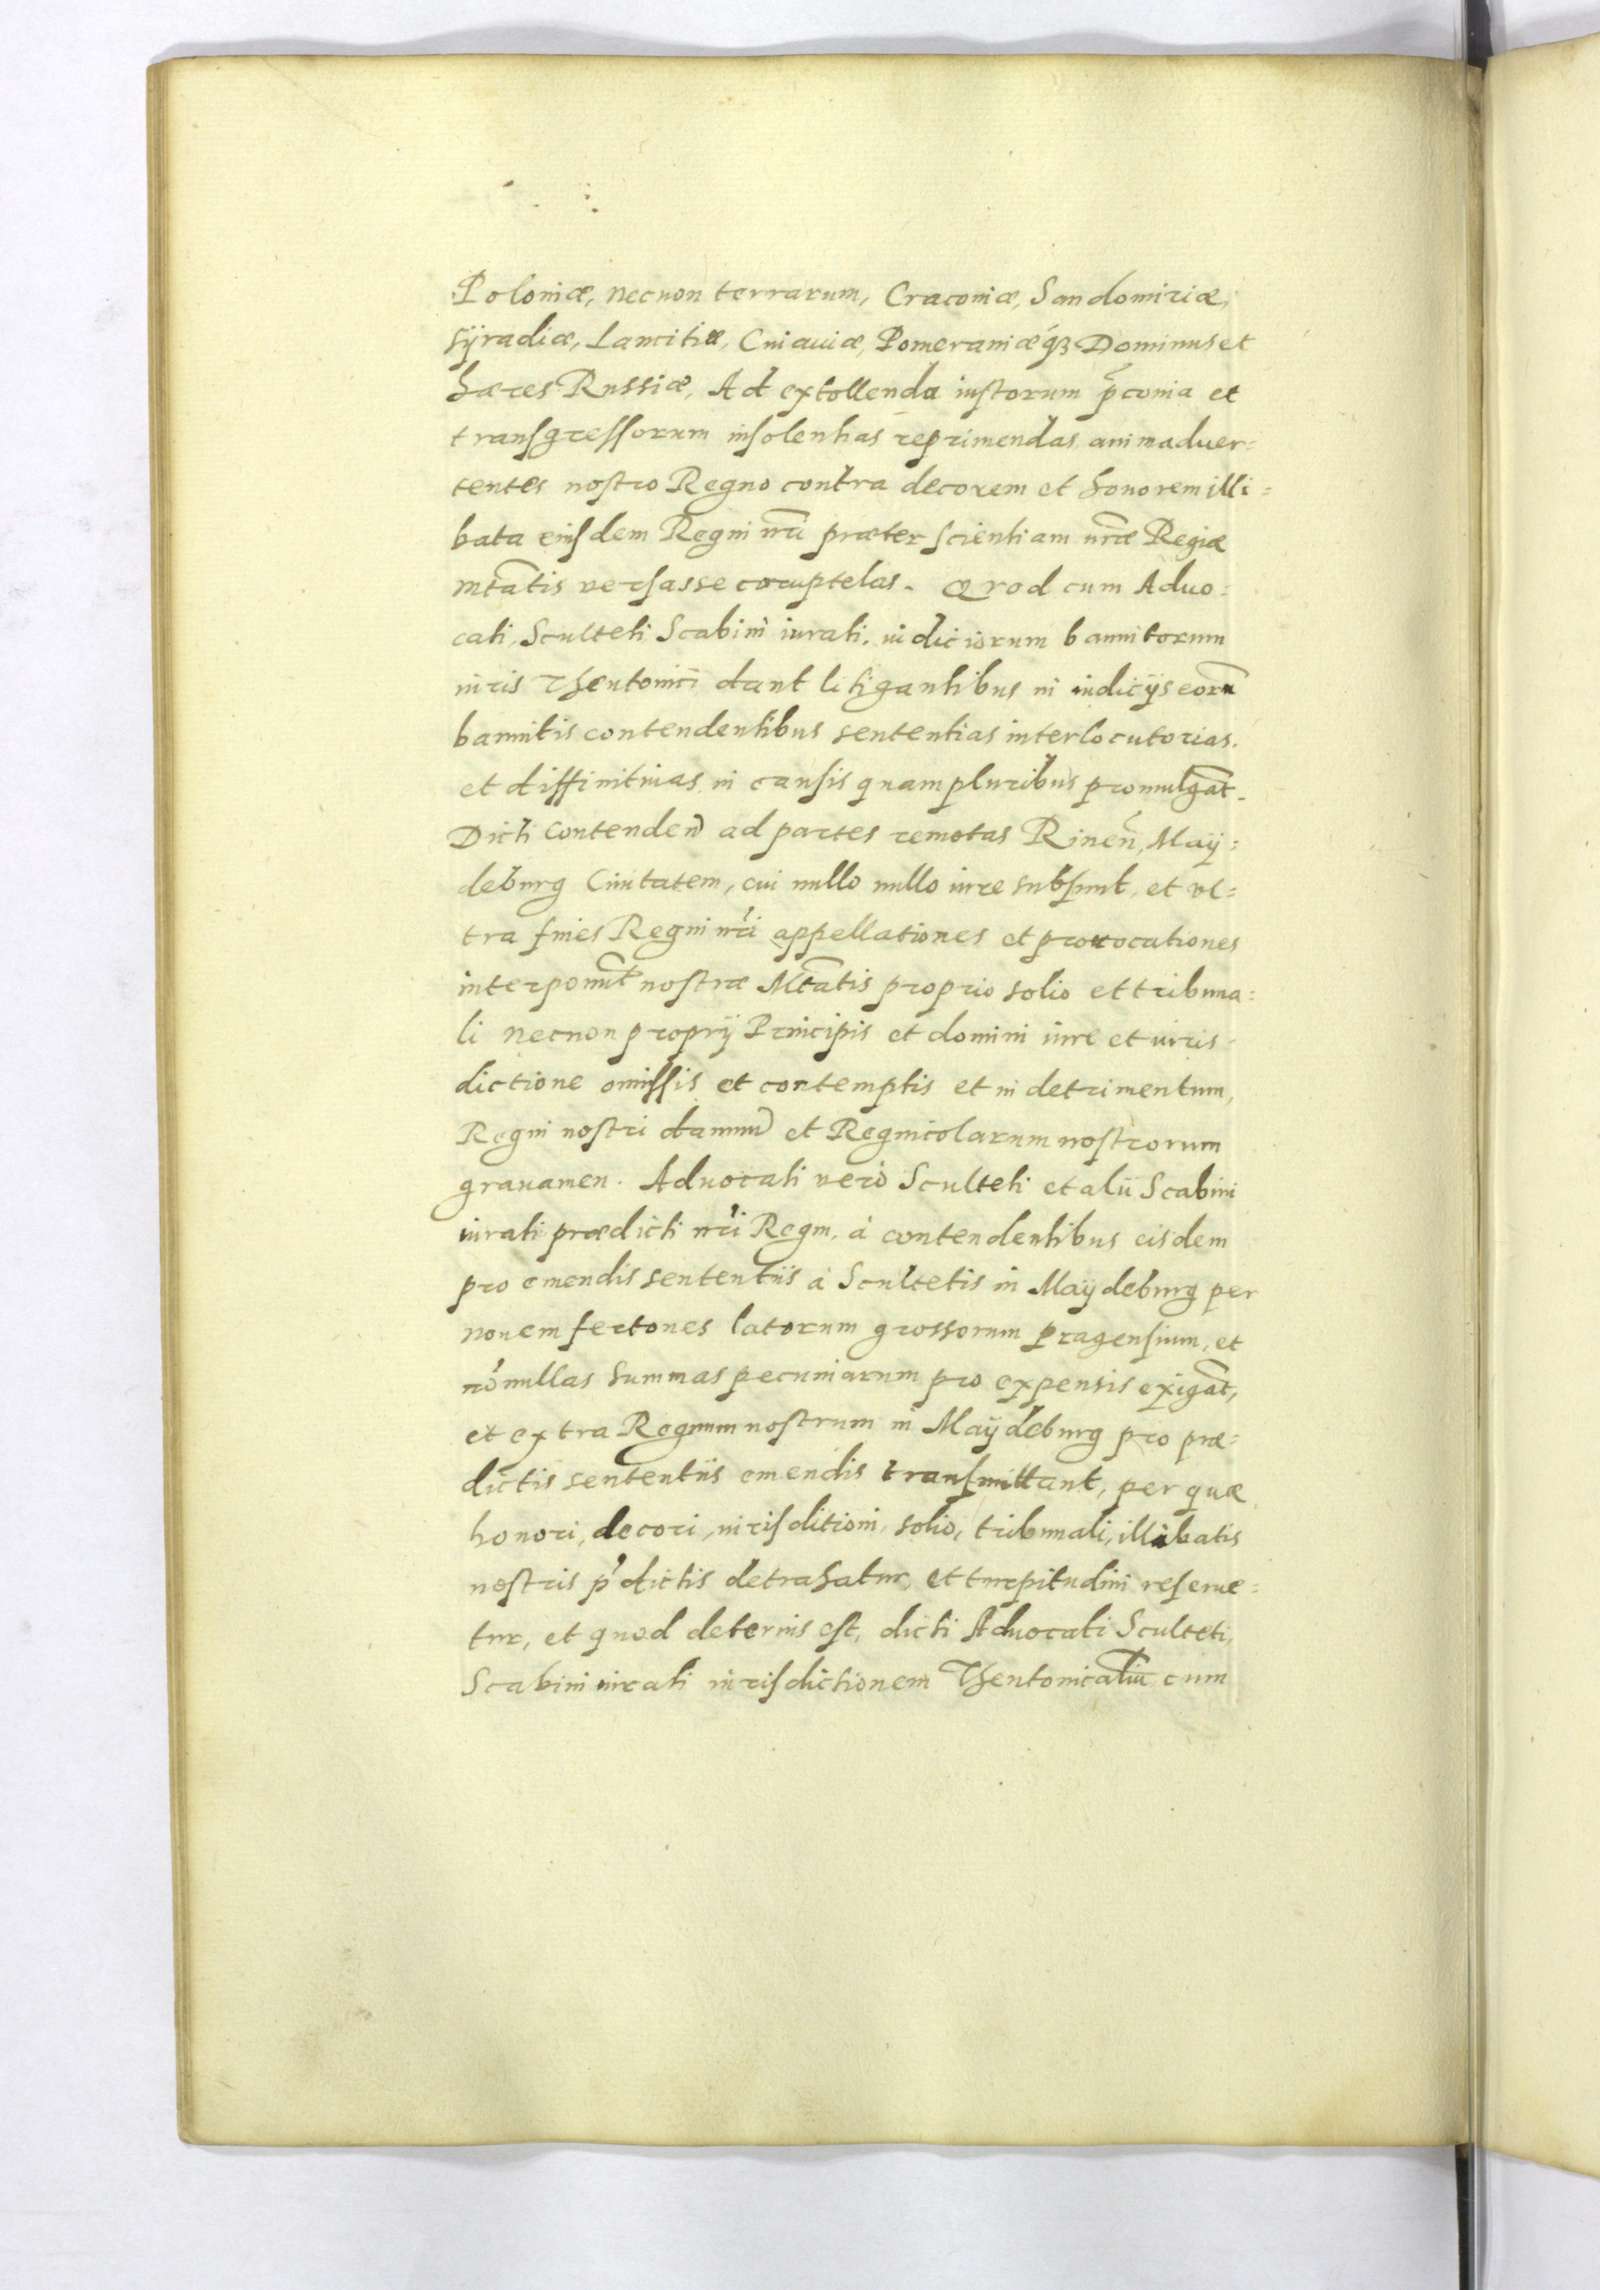 Poloniæ, necnon terrarum, Cracoviæ, Sandomiriæ,
Sÿradiæ, Lancitiæ, Cuiauiæ, Pomeraniæq́ꝫ Dominus et
hæres Russiæ, Ad extollenda iustorum p̃conia et
transgressorum insolentias reprimendas animaduer=
tentes nostro Regno contra decorem et honorem illi=
bata eiusdem Regni nr̃i præter scientiam nr̃æ Regiæ
Mtãtis versasse coruptelas. Quod cum Aduo=
cati, Sculteti Scabini iurati, iudiciorum bannitorum
iuris Theutonici dant litigantibus in iudicÿs eorũ
bannitis contendentibus sententias interlocutorias.
et diffinitiuas in causis quampluribus promulgãt.
Dicti Contenden̄ ad partes remotas Rinen̄, Maÿ=
deburg Ciuitatem, cui nullo nullo iure subsunt, et vl=
tra fines Regni nr̃i appellationes et prouocationes
interponũt nostræ Mtãtis proprio solio et tribuna=
li necnon proprÿ Principis et domini iure et iuris
dictione omissis et contemptis et in detrimentum,
Regni nostri damnũ et Regnicolarum nostrorum
grauamen. Aduocati verò Sculteti et alii Scabini
iurati prædicti nr̃i Regni, à contendentibus eisdem
pro emendis sententiis à Scultetis in Maÿdeburg per
nouem fertones latorum grossorum Pragensium, et
nõnullas summas pecuniarum pro expensis exigãt,
et extra Regnum nostrum in Maÿdeburg pro præ=
dictis sententiis emendis transmittant, per quæ
honori, decori, iurisditioni, solio, tribunali, illibatis
nostris p̃dictis detrahatur, et turpitudini reserue=
tur, et quod deterius est, dicti Aduocati Sculteti,
Scabini iurati iurisdictionem Theutonicaliũ cum